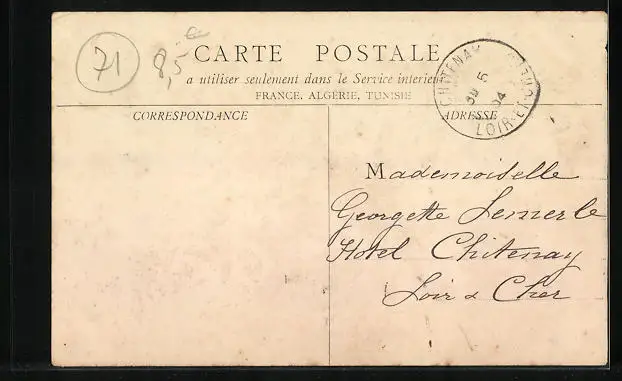 71
8,5 e
CARTE POSTALE
a utiliser seulement dans le Service interieur
FRANCE, ALGÉRIE, TUNISIE
CHITENAY
5
04
LOIR-ET-CHER
CORRESPONDANCE
ADRESSE
Mademoiselle
Georgette Lemerle
Hotel Chitenay
Loir & Cher